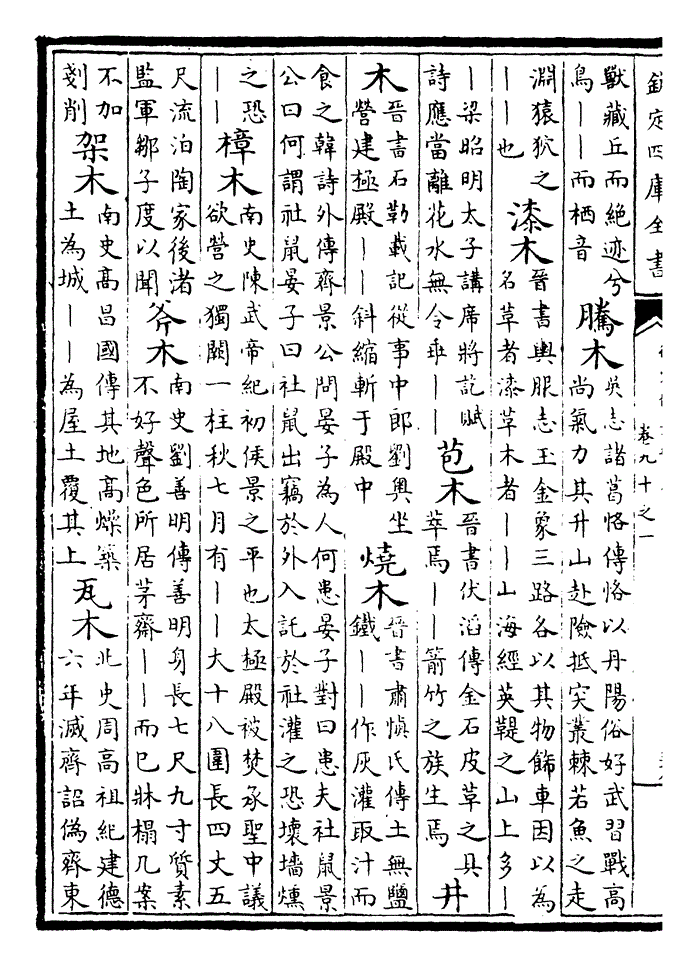 欽定四庫全書
卷九十之一
獸藏丘而絶迹兮
鳥——而栖音
騰木
吳志諸葛恪傳恪以丹陽俗好武習戰高
尚氣力其升山赴險抵突叢棘若魚之走
淵猿狖之
——也
漆木
晉書輿服志玉金象三路各以其物飾車因以為
名革者漆革木者——山海經英鞮之山上多—
—梁昭明太子講席將訖賦
詩應當離花水無令乖——
苞木
晉書伏滔傳金石皮革之具
萃焉——箭竹之族生焉
井
木
晉書石勒載記從事中郎劉奥坐
營建極殿——斜縮斬于殿中
燒木
晉書肅慎氏傳土無鹽
鐵——作灰灌取汁而
食之韓詩外傳齊景公問晏子為人何患晏子對曰患夫社鼠景
公曰何謂社鼠晏子曰社鼠出竊於外入託於社灌之恐壞墻燻
之恐
——
樟木
南史陳武帝紀初侯景之平也太極殿被焚承聖中議
欲營之獨闕一柱秋七月有——大十八圍長四丈五
尺流泊陶家後渚
監軍鄒子度以聞
斧木
南史劉善明傳善明身長七尺九寸質素
不好聲色所居茅齋——而已牀榻几案
不加
剗削
架木
南史高昌國傳其地高燥築
土為城——為屋土覆其上
瓦木
北史周高祖紀建德
六年滅齊詔偽齊東